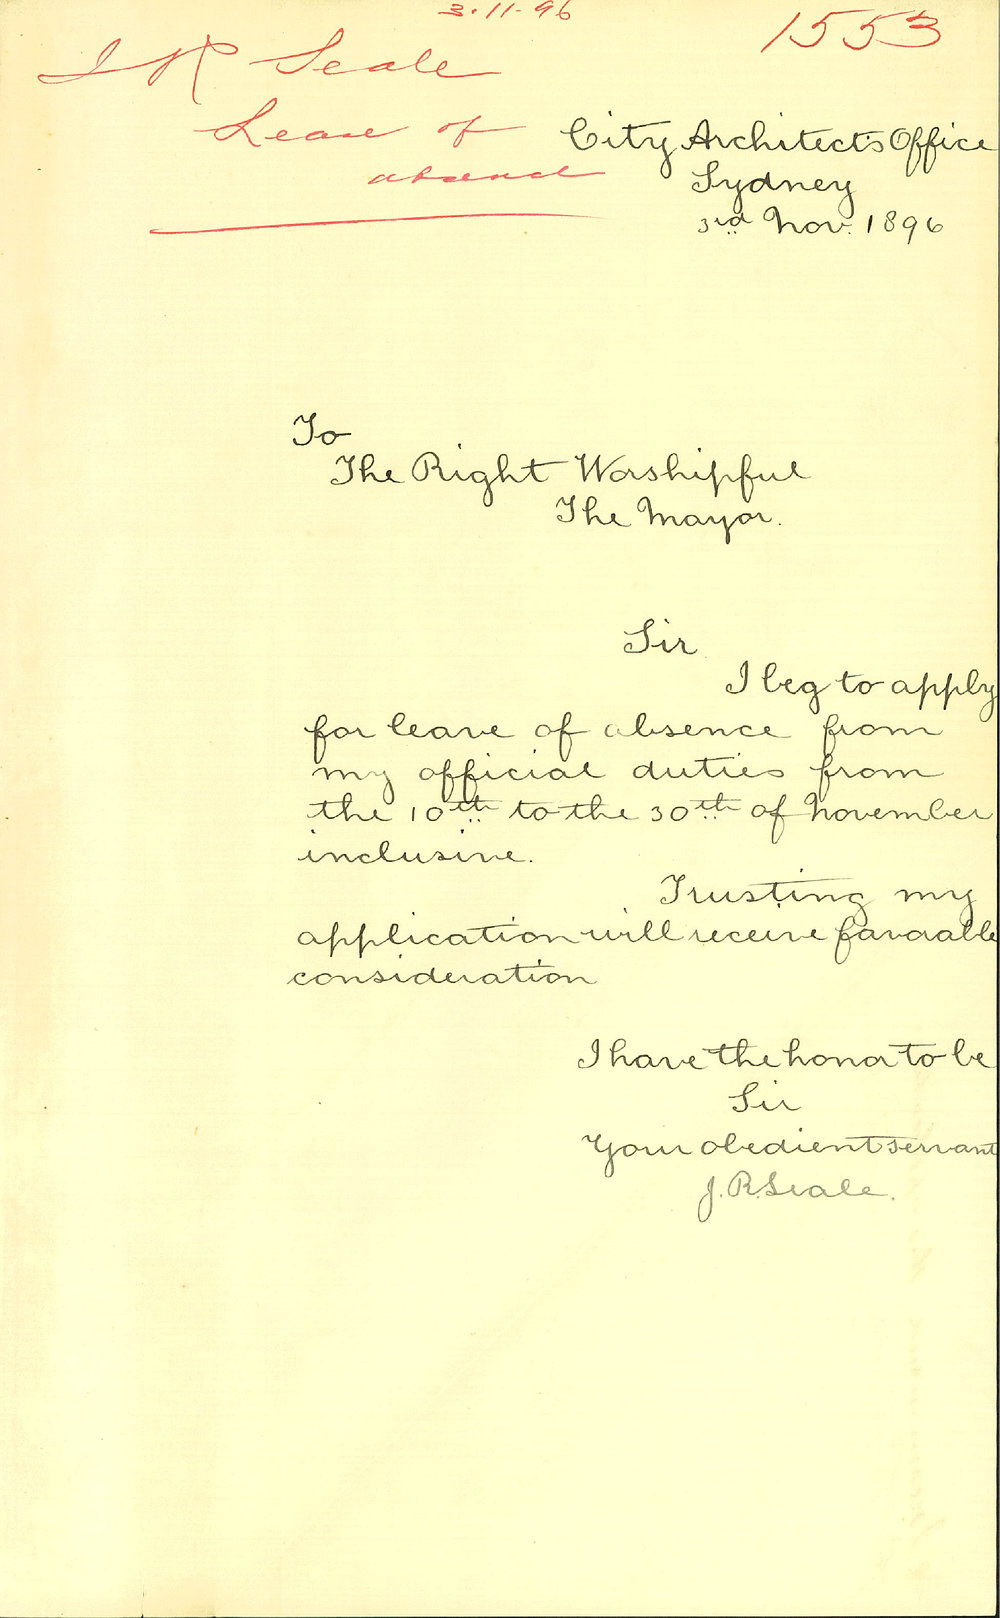 3.11.96
1553
J R Seale
Leave of
absence
City Architect's Office
Sydney
3rd Nov. 1896
To
The Right Worshipful
The Mayor.
Sir
I beg to apply
for leave of absence from
my official duties from
the 10th to the 30th of November
inclusive.
Trusting my
application will receive favorable
consideration
I have the honor to be
Sir
Your obedient servant
J. R. Seale.